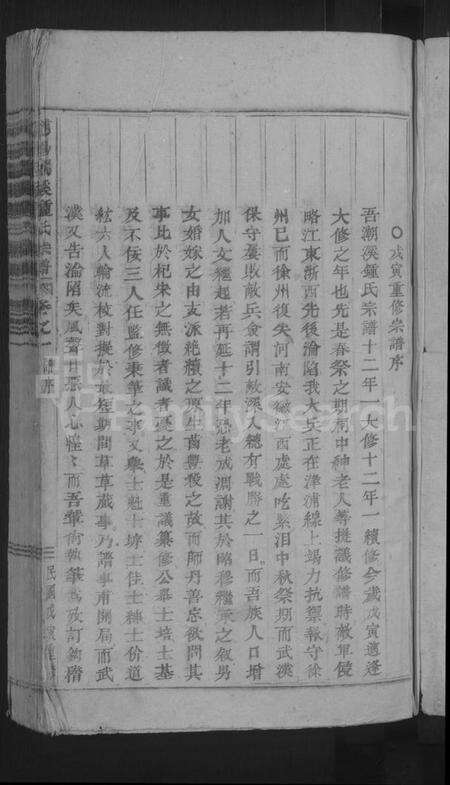 ○戊寅重修宗譜序
吾潮溪鍾氏宗譜十二年一大修十二年一續修今歲戊寅適逢
大修之年也先是春祭之期祠中紳老人等提議修譜時敵軍侵
略江東浙西先後淪陷我大兵正在津浦線上竭力抗禦報守徐
州已而徐州復失河南安徽江西處處吃緊泪中秋祭期而武漢
保守屢敗敵兵僉謂引敵深入總有戰勝之一日而吾族人口增
加人文繼起若再延十二年恐老成凋謝其於昭穆繼承之叙男
女婚嫁之由支派絶續之原生葬興發之故而師丹善忘欲問其
事比於杞宋之無徵者識者憂之於是重議纂修公舉士培士基
及不佞三人任監修秉筆之事又舉士魁士士佳士紳士份道
紘六人輪流校對擬於最短期間草草蕆事乃譜事甫開局而武
漢又告淪陷矣風聲廿張人心惶惶而吾輩尚執筆為改訂
譜序
民國戊寅重修
FamilySearch